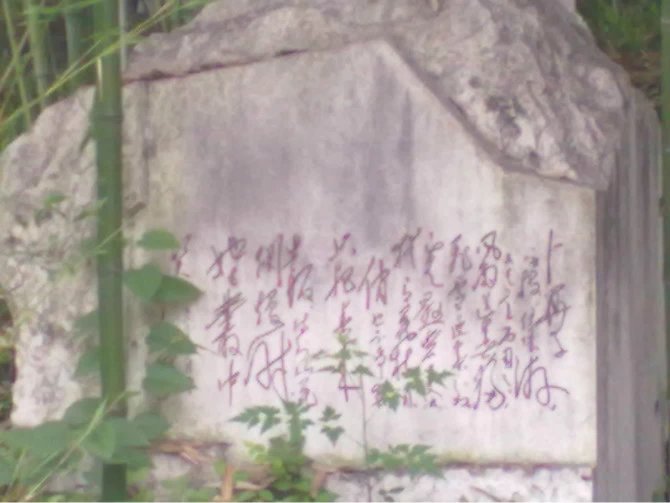 卜算子
风雨送春归
飞雪迎春到已
是悬崖百丈冰
犹有花枝
俏也不争春
只把春来
报待到山花
烂漫时
她在叢中
笑